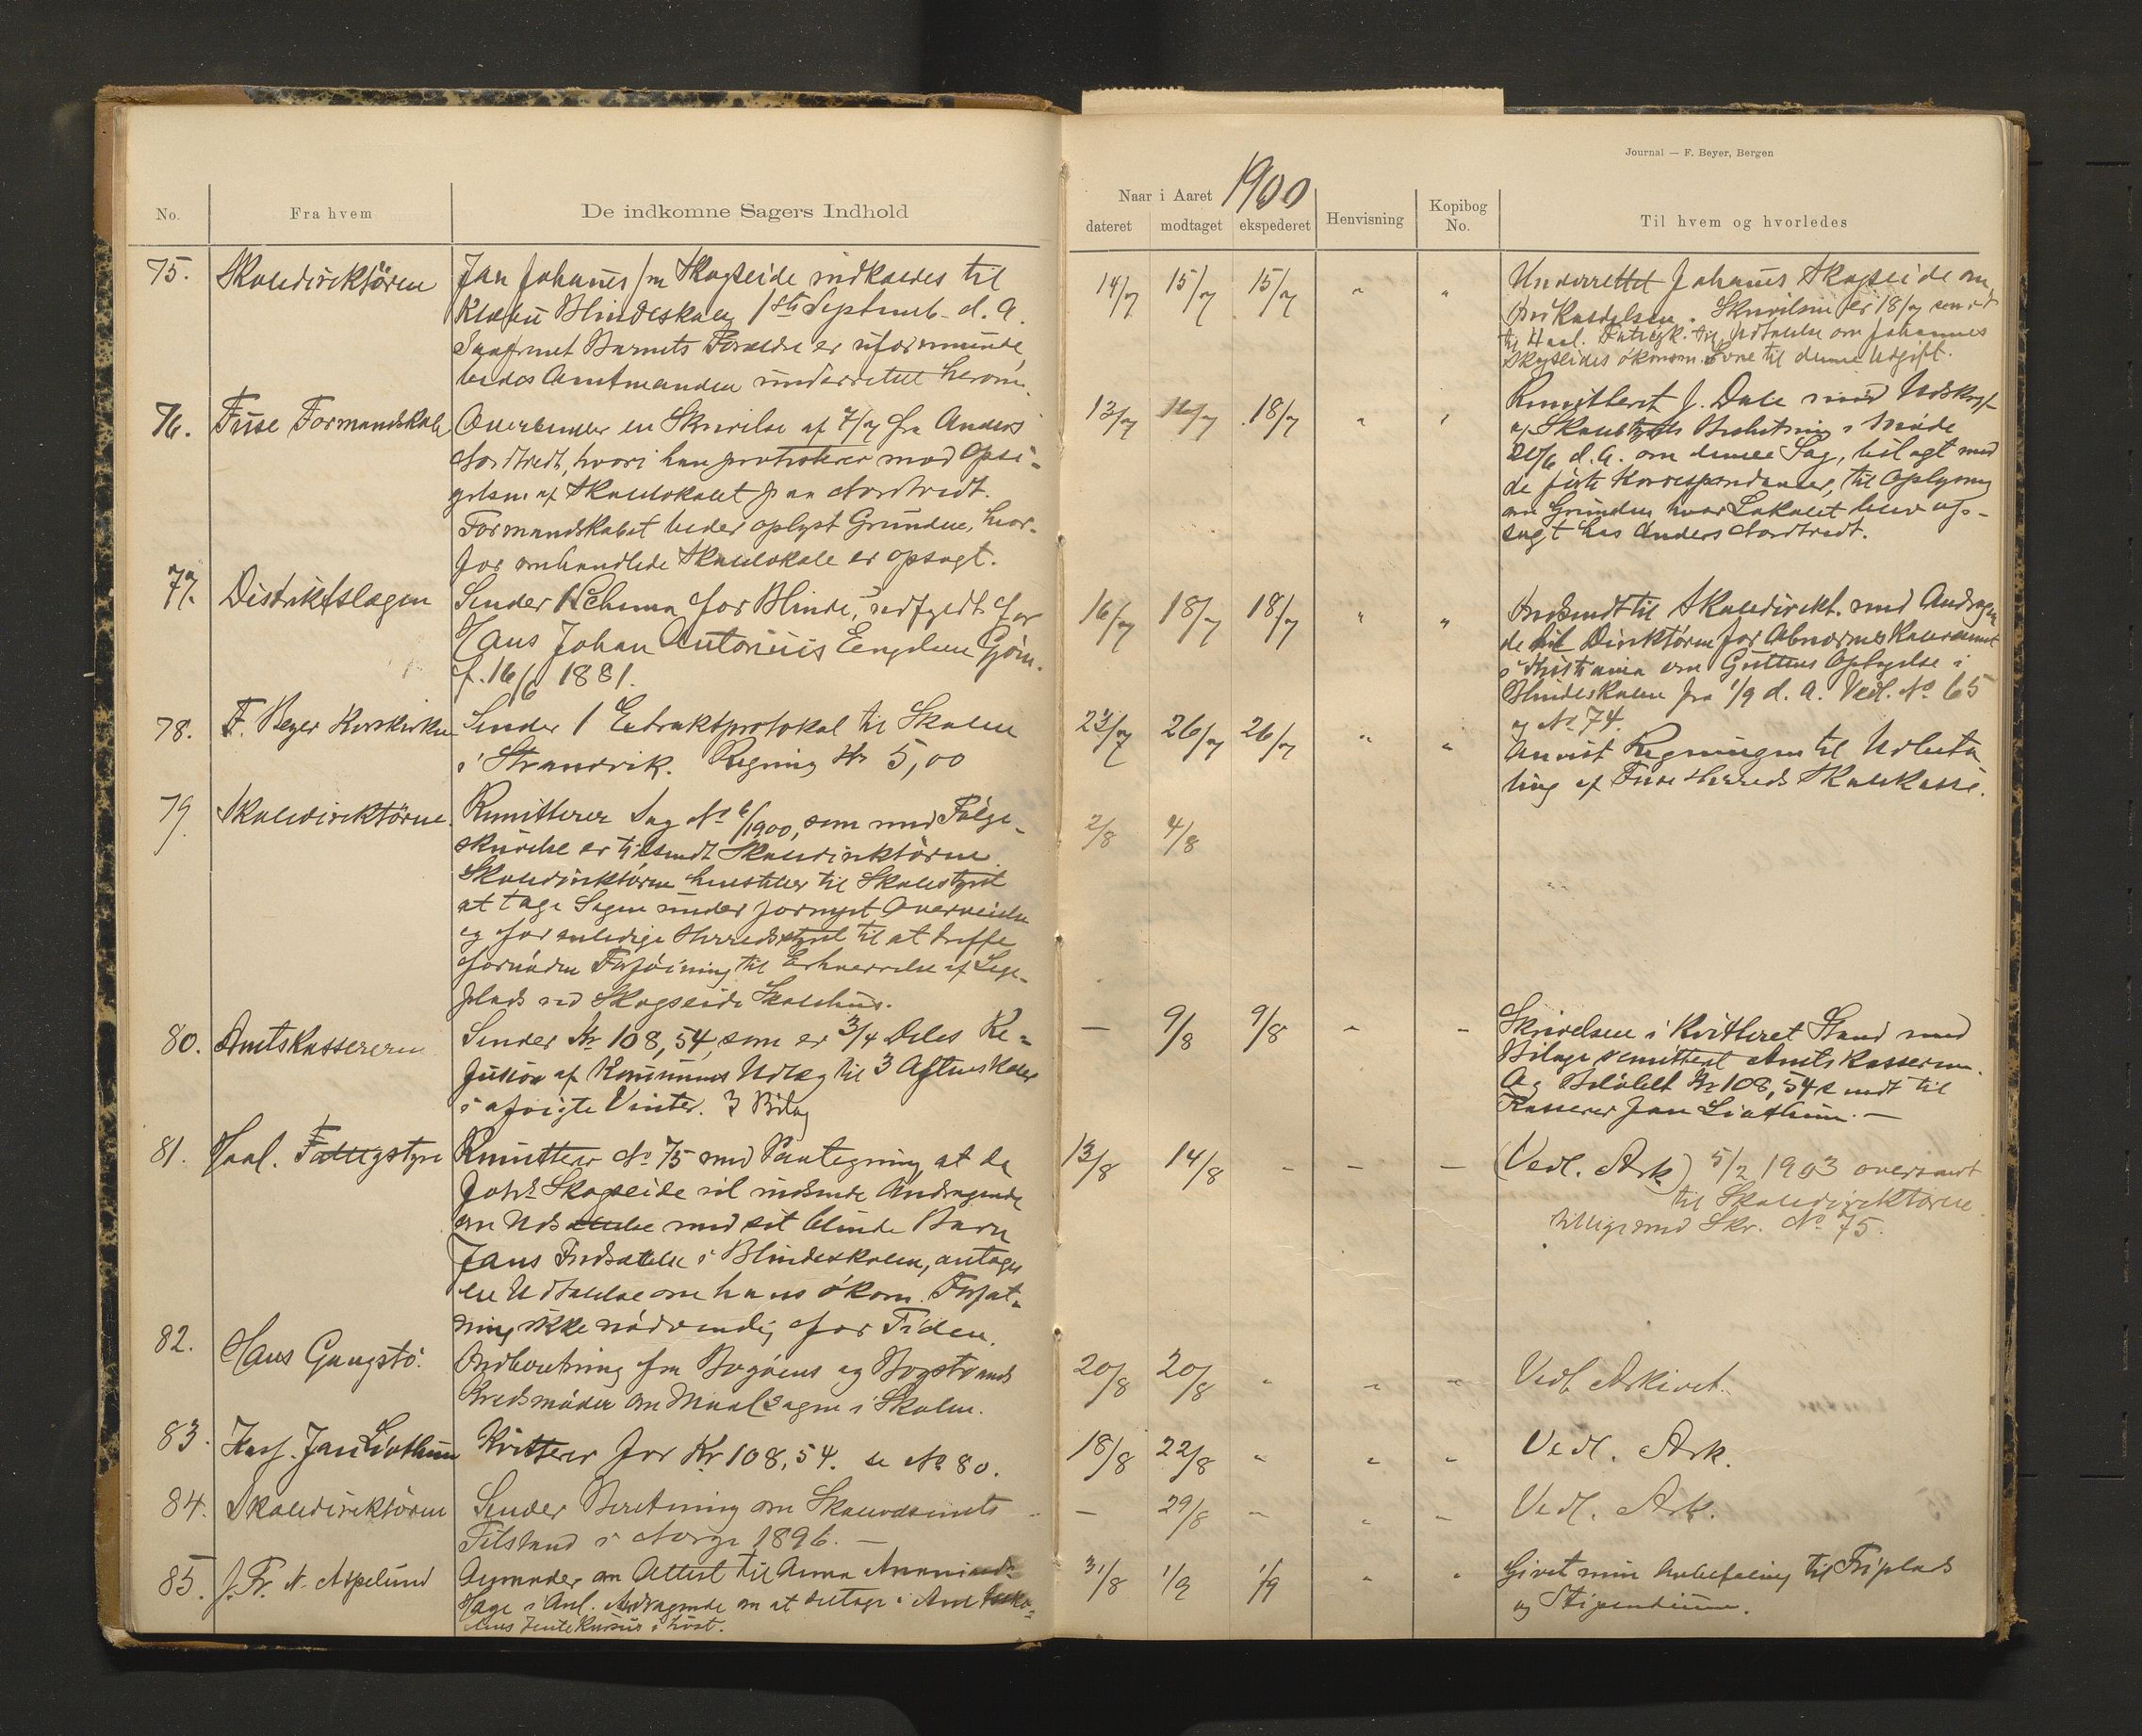 Journal — F. Beyer, Bergen
No.
Fra hvem
De indkomne Sagers Indhold
Naar i Aaret 1900
dateret modtaget ekspederet
Henvisning
Kopibog No.
Til hvem og hvorledes
75. Skoledirektøren
Jan Johannes/sn Skogseide indkaldes til
Klæbu Blindeskole 1ste Septemb. d. A.
Saafremt Barnets Forældre er uformuende
bedes Amtmanden underrettet herom.
14/7 15/7 15/7 " "
Underrettet Johannes Skogseide om
Indkaldelsen. Skrivelsen er 18/7 sendt
til Haal. Fattigk. til Udtalelse om Johannes
Skogseides økonom. Evne til denne Udgift.
76. Fuse Formandskab
Oversender en Skrivelse af 7/7 fra Anders
Nordtvedt, hvori han protesterer mod Opsi-
gelsen af Skolelokalet paa Nordtvedt.
Formandskabet beder oplyst Grunden, hvor-
for omhandlede Skolelokale er opsagt.
13/7 16/7 18/7 " "
Remitteret J. Dale med Udskrift
af Skolestyrets Beslutning i Møde
20/6 d. A. om denne Sag, bilagt med
de førte Korrespondancer, til Oplysning
om Grunden hvor Lokalet blev op-
sagt hos Anders Nordtvedt.
77. Distriktslægen
Sender 1 Schema for Blinde, udfyldt for
Hans Johan Antonius Engelsen Gjøn.
f. 16/6 1881.
16/7 18/7 18/7 " "
Indsendt til Skoledirekt. med Andragen
de til Direktøren for Abnormskolevæsenet
i Kristiania om Guttens Optagelse i
Blindeskolen fra 1/9 d. A. Vedl. No 65
og No 74.
78. F. Beyer Korskirken
Sender 1 Extraktprotokol til Skolen
i Strandvik. Regning Kr 5,00
23/7 26/7 26/7 " "
Anvist Regningen til Udbeta
ling af Fuse Herreds Skolekasse.
79. Skoledirektørne.
Remitterer Sag No 6/1900, som med Følge-
skrivelse er tilsendt Skoledirektørne.
Skoledirektørne henstiller til Skolestyret
at tage Sagen under fornyet Overveielse
og foranledige Herredsstyret til at treffe
fornøden Forføining til Erhvervelse af Lege-
plads ved Skogseide Skolehus.
2/8 4/8
80. Amtskassereren
Sender Kr 108,54, som er 3/4 Deles Re-
fusion af Kommunens Udlæg til 3 Aftenskoler
i afvigte Vinter. 3 Bilag
— 9/8 9/8 " "
Skrivelsen i kvitteret Stand med
Bilage remitteret Amtskasseren.
Og Beløbet Kr 108,54 sendt til
Kasserer Jan Liothun. —
81. Haal. Fattigstyre
Remitterer No 75 med Paategning at da
Johs Skogseide vil indsende Andragende
om Udsættelse med sit blinde Barn
Jans Indsættelse i Blindeskolen, antages
en Udtalelse om hans økon. Forfat-
ning ikke nødvendig for Tiden.
13/8 14/8 — — —
(Vedl. Ark.) 5/2 1903 oversendt
til Skoledirektørne
tilligemed Skr. No 75.
82. Hans Gangstø.
Indberetning fra Bogøens og Bogstrands
Kredsmøder om Maalsagen i Skolen.
20/8 20/8 " " "
Vedl. Arkivet.
83. Kass. Jan Liothun
Kvitterer for Kr 108,54. se No 80.
18/8 22/8 " " "
Vedl. Ark.
84. Skoledirektøren
Sender Beretning om Skolevæsenets
Tilstand i Norge 1896. —
— 29/8 — " "
Vedl. Ark.
85. J. Fr. N. Aspelund
Anmoder om Attest til Anna
Hage i Anl. Andragende om at deltage i Amtssko-
lens Jentekursus i Høst.
31/8 1/9 1/9 " "
Givet min Anbefaling til Friplads
og Stipendium.